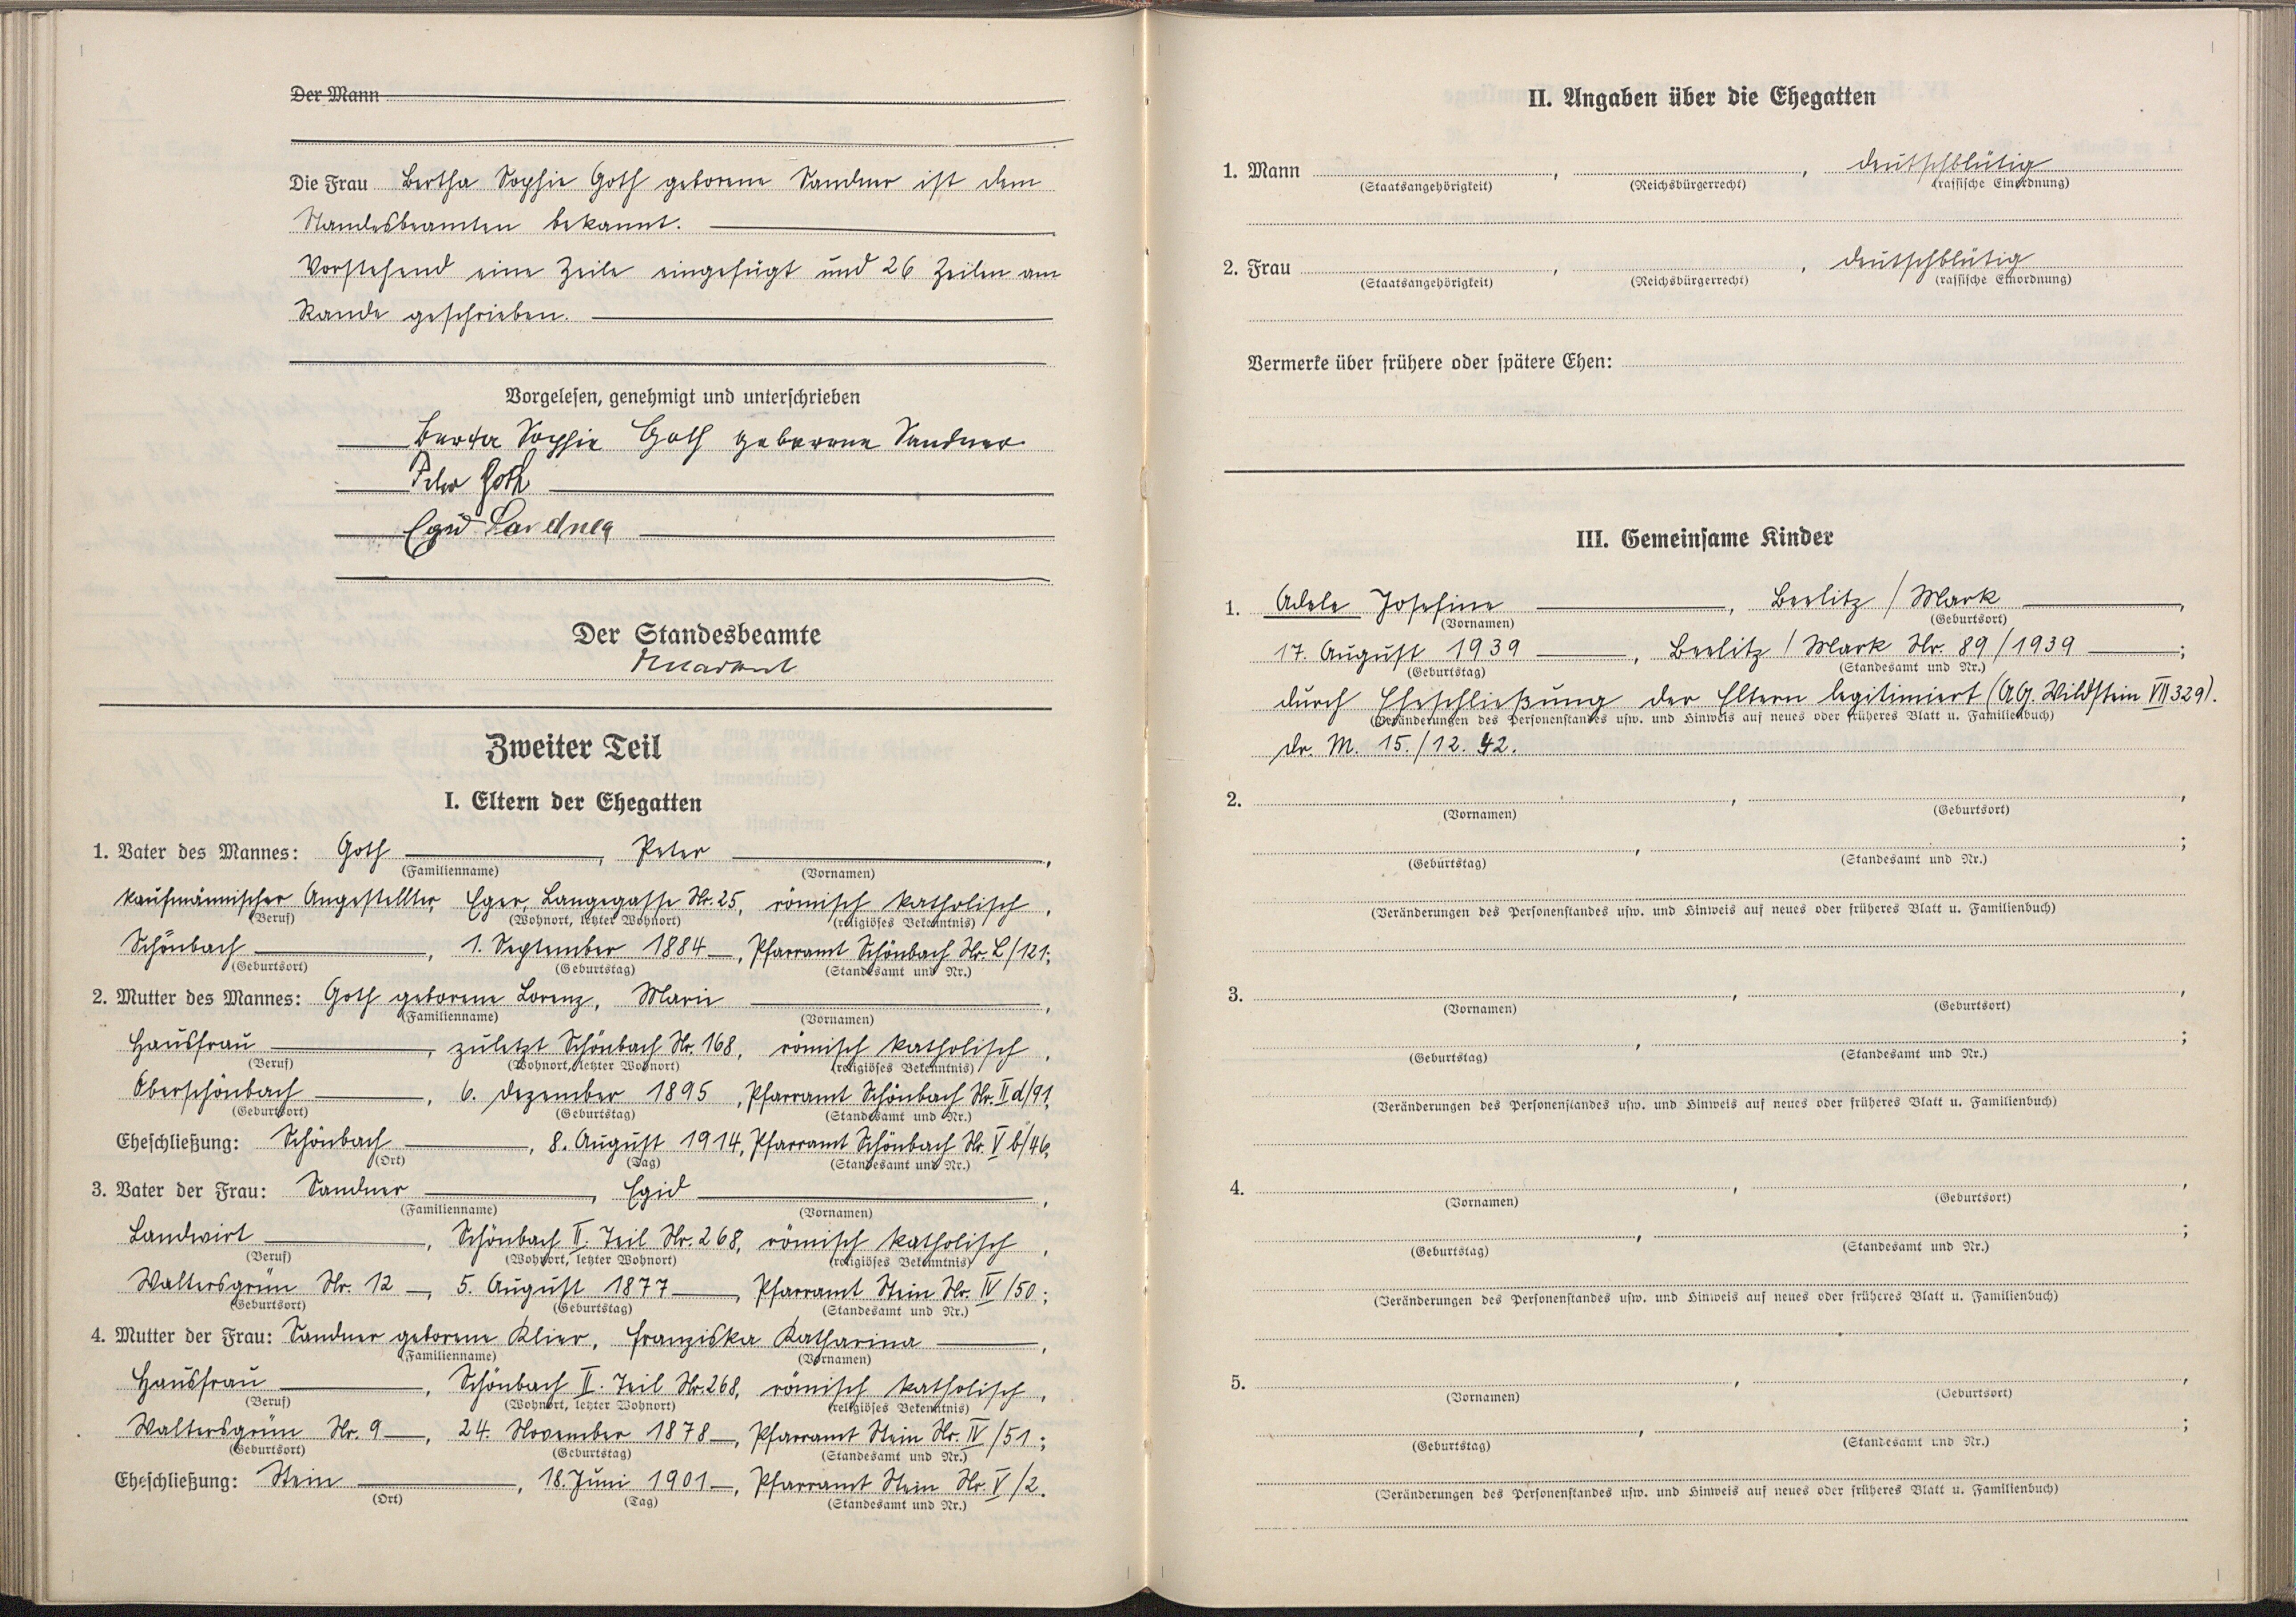 Der Mann
Die Frau Bertha Sophie Goth geborene Sandner ist dem
Standesbeamten bekannt.
Vorstehend eine Zeile eingefügt und 26 Zeilen am
Rande geschrieben.
Vorgelesen, genehmigt und unterschrieben
Berta Sophie Goth geborene Sandner
Peter Goth
Egid Sandner
Der Standesbeamte
Zweiter Teil
I. Eltern der Ehegatten
1. Vater des Mannes: Goth, Peter,
(Familienname) (Vornamen)
kaufmännischer Angestellter, Eger, Langegasse Nr. 25, römisch katholisch,
(Beruf) (Wohnort, letzter Wohnort) (religiöses Bekenntnis)
Schönbach, 1. September 1884, Pfarramt Schönbach Nr. L/121;
(Geburtsort) (Geburtstag) (Standesamt und Nr.)
2. Mutter des Mannes: Goth geborene Lorenz, Marie,
(Familienname) (Vornamen)
Hausfrau, zuletzt Schönbach Nr. 168, römisch katholisch,
(Beruf) (Wohnort, letzter Wohnort) (religiöses Bekenntnis)
Oberschönbach, 6. Dezember 1895, Pfarramt Schönbach Nr. II d/91,
(Geburtsort) (Geburtstag) (Standesamt und Nr.)
Eheschließung: Schönbach, 8. August 1914, Pfarramt Schönbach Nr. V b/46,
(Ort) (Tag) (Standesamt und Nr.)
3. Vater der Frau: Sandner, Egid,
(Familienname) (Vornamen)
Landwirt, Schönbach II. Teil Nr. 268, römisch katholisch,
(Beruf) (Wohnort, letzter Wohnort) (religiöses Bekenntnis)
Waltersgrün Nr. 12, 5. August 1877, Pfarramt Stein Nr. IV/50;
(Geburtsort) (Geburtstag) (Standesamt und Nr.)
4. Mutter der Frau: Sandner geborene Klier, Franziska Katharina,
(Familienname) (Vornamen)
Hausfrau, Schönbach II. Teil Nr. 268, römisch katholisch,
(Beruf) (Wohnort, letzter Wohnort) (religiöses Bekenntnis)
Waltersgrün Nr. 9, 24. November 1878, Pfarramt Stein Nr. IV/51;
(Geburtsort) (Geburtstag) (Standesamt und Nr.)
Eheschließung: Stein, 18. Juni 1901, Pfarramt Stein Nr. V/2.
(Ort) (Tag) (Standesamt und Nr.)
II. Angaben über die Ehegatten
1. Mann , , deutschblütig
(Staatsangehörigkeit) (Reichsbürgerrecht) (rassische Einordnung)
2. Frau , , deutschblütig
(Staatsangehörigkeit) (Reichsbürgerrecht) (rassische Einordnung)
Vermerke über frühere oder spätere Ehen:
III. Gemeinsame Kinder
1. Adele Josefine, Beelitz / Mark,
(Vornamen) (Geburtsort)
17. August 1939, Beelitz / Mark Nr. 89/1939;
(Geburtstag) (Standesamt und Nr.)
durch Eheschließung der Eltern legitimiert (AG. Wildstein VII 329).
(Veränderungen des Personenstandes usw. und Hinweis auf neues oder früheres Blatt u. Familienbuch)
dr. M. 15./12. 42.
2. , ,
(Vornamen) (Geburtsort)
, ;
(Geburtstag) (Standesamt und Nr.)
(Veränderungen des Personenstandes usw. und Hinweis auf neues oder früheres Blatt u. Familienbuch)
3. , ,
(Vornamen) (Geburtsort)
, ;
(Geburtstag) (Standesamt und Nr.)
(Veränderungen des Personenstandes usw. und Hinweis auf neues oder früheres Blatt u. Familienbuch)
4. , ,
(Vornamen) (Geburtsort)
, ;
(Geburtstag) (Standesamt und Nr.)
(Veränderungen des Personenstandes usw. und Hinweis auf neues oder früheres Blatt u. Familienbuch)
5. , ,
(Vornamen) (Geburtsort)
, ;
(Geburtstag) (Standesamt und Nr.)
(Veränderungen des Personenstandes usw. und Hinweis auf neues oder früheres Blatt u. Familienbuch)